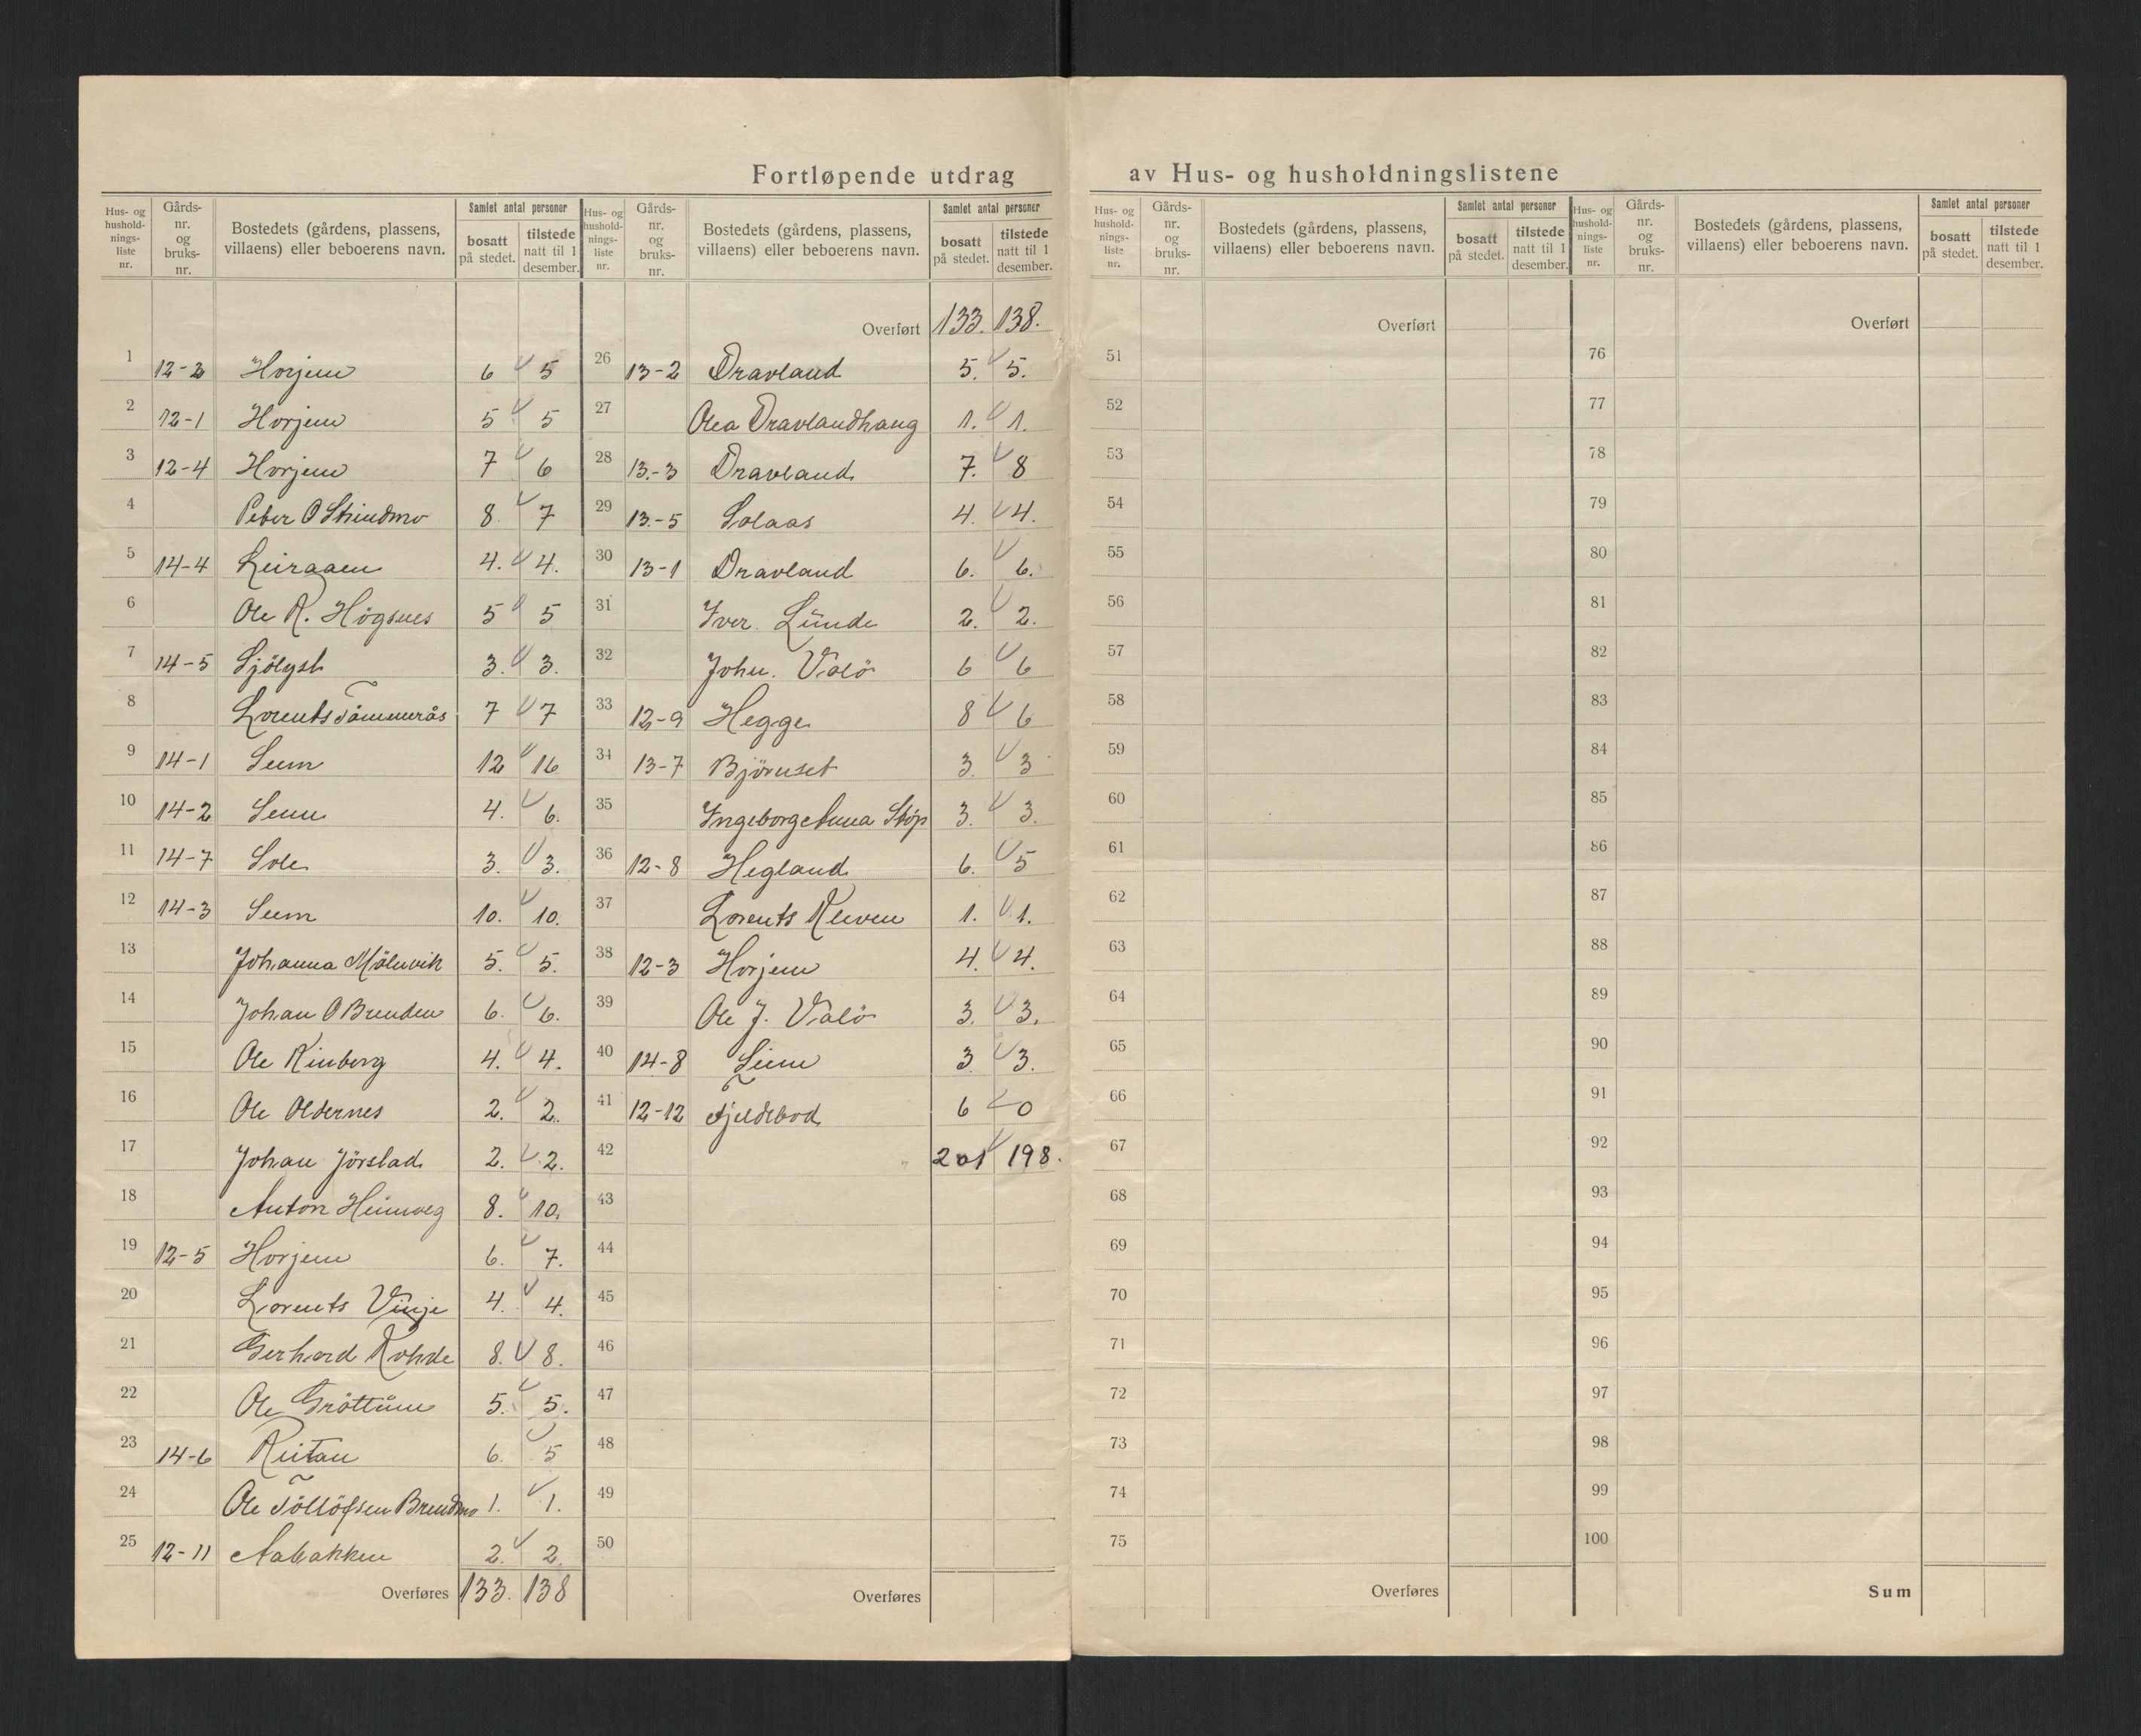 Fortløpende utdrag av Hus- og husholdningslistene
Hus- og hushold-nings-liste nr. | Gårds-nr. og bruks-nr. | Bostedets (gårdens, plassens, villaens) eller beboerens navn. | Samlet antal personer | bosatt på stedet. | tilstede natt til 1 desember.
1 12-2 Horjem 6 5
2 12-1 Horjem 5 5
3 12-4 Horjem 7 6
4 Peter O Strindmo 8 7
5 14-4 Leiraaen 4. 4.
6 Ole R. Högsnes 5 5
7 14-5 Sjölyst 3. 3.
8 Lorents Tömmerås 7 7
9 14-1 Sem 12 16
10 14-2 Sem 4. 6.
11 14-7 Sole 3. 3.
12 14-3 Sem 10. 10.
13 Johanna Mölnvik 5. 5.
14 Johan O Brenden 6. 6.
15 Ole Rinberg 4. 4.
16 Ole Oldernes 2. 2.
17 Johan Jörstad 2. 2.
18 Anton Heimveg 8. 10.
19 12-5 Horjem 6. 7.
20 Lorents Vinje 4. 4.
21 Gerhard Rohde 8. 8.
22 Ole Gröttum 5. 5.
23 14-6 Reitan 6. 5
24 Ole Töllöfsen Brendmo 1. 1.
25 12-11 Aabakken 2. 2.
Overføres 133. 138
Hus- og hushold-nings-liste nr. | Gårds-nr. og bruks-nr. | Bostedets (gårdens, plassens, villaens) eller beboerens navn. | Samlet antal personer | bosatt på stedet. | tilstede natt til 1 desember.
Overført 133. 138.
26 13-2 Dravland 5. 5.
27 Olea Dravlandhaug 1. 1.
28 13.-3 Dravland 7. 8
29 13.-5 Solaas 4. 4.
30 13-1 Dravland 6. 6.
31 Iver Lunde 2. 2.
32 John. Valö 6 6
33 12-9 Hegge 8 6
34 13-7 Björnset 3. 3
35 Ingeborganna Stöp 3. 3.
36 12-8 Hegland 6. 5
37 Lorents Kleven 1. 1.
38 12-3 Horjem 4. 4.
39 Ole J. Valö 3. 3.
40 14-8 Sem 3. 3.
41 12-12 Fjeldbod 6 0
42 201 198.
43
44
45
46
47
48
49
50
Overføres
Hus- og hushold-nings-liste nr. | Gårds-nr. og bruks-nr. | Bostedets (gårdens, plassens, villaens) eller beboerens navn. | Samlet antal personer | bosatt på stedet. | tilstede natt til 1 desember.
Overført
51
52
53
54
55
56
57
58
59
60
61
62
63
64
65
66
67
68
69
70
71
72
73
74
75
Overføres
Hus- og hushold-nings-liste nr. | Gårds-nr. og bruks-nr. | Bostedets (gårdens, plassens, villaens) eller beboerens navn. | Samlet antal personer | bosatt på stedet. | tilstede natt til 1 desember.
Overført
76
77
78
79
80
81
82
83
84
85
86
87
88
89
90
91
92
93
94
95
96
97
98
99
100
Sum